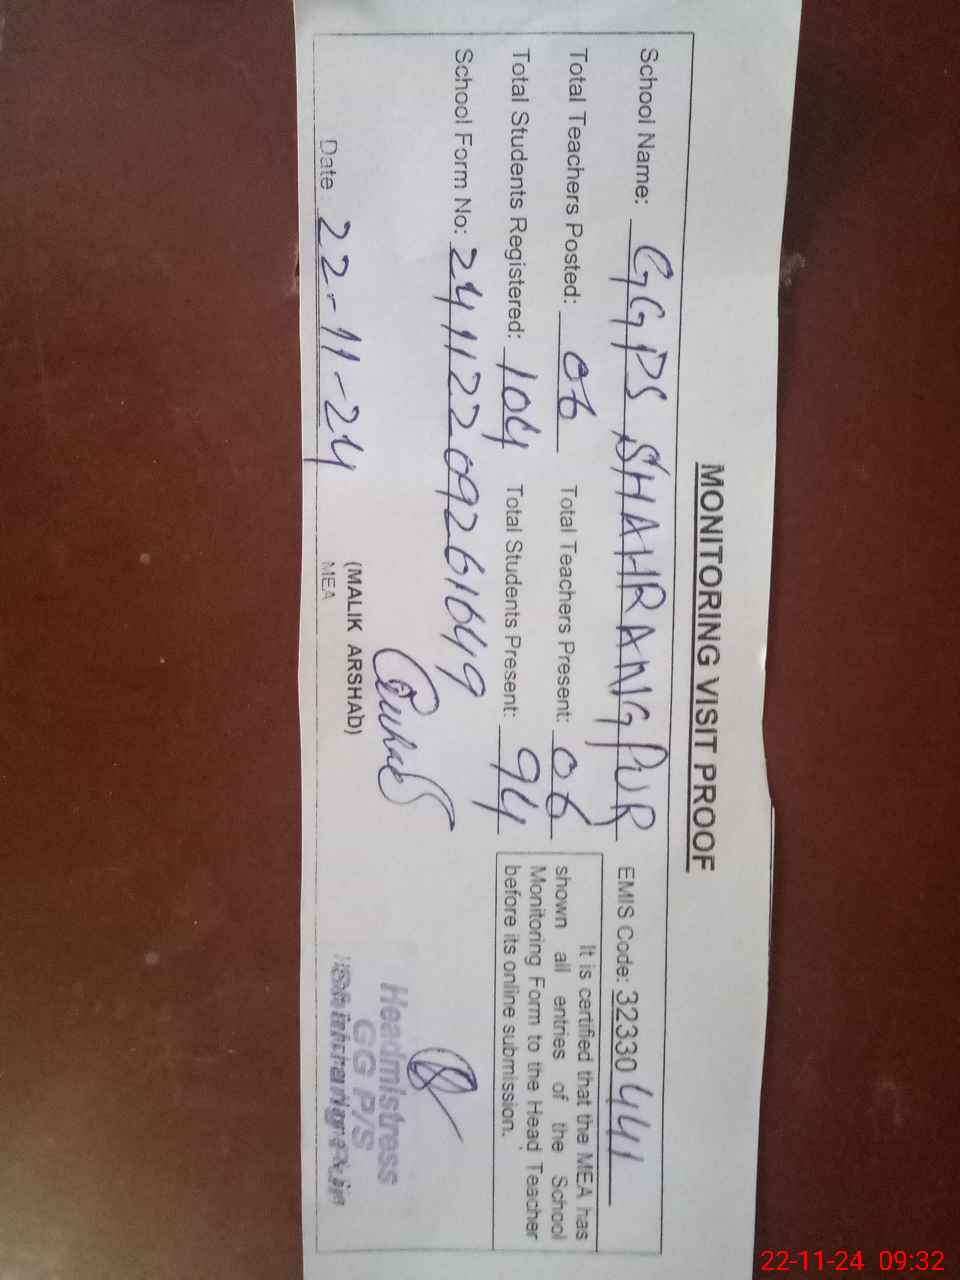 MONITORING VISIT PROOF
School Name: GGPS SHAHRANGPUR EMIS Code: 32330441
Total Teachers Posted: 06 Total Teachers Present: 06
Total Students Registered: 104 Total Students Present: 94
School Form No: 24112209261649
It is certified that the MEA has
shown all entries of the School
Monitoring Form to the Head Teacher
before its online submission.
Date 22-11-24
(MALIK ARSHAD)
MEA
Headmistress
GG P/S
22-11-24 09:32